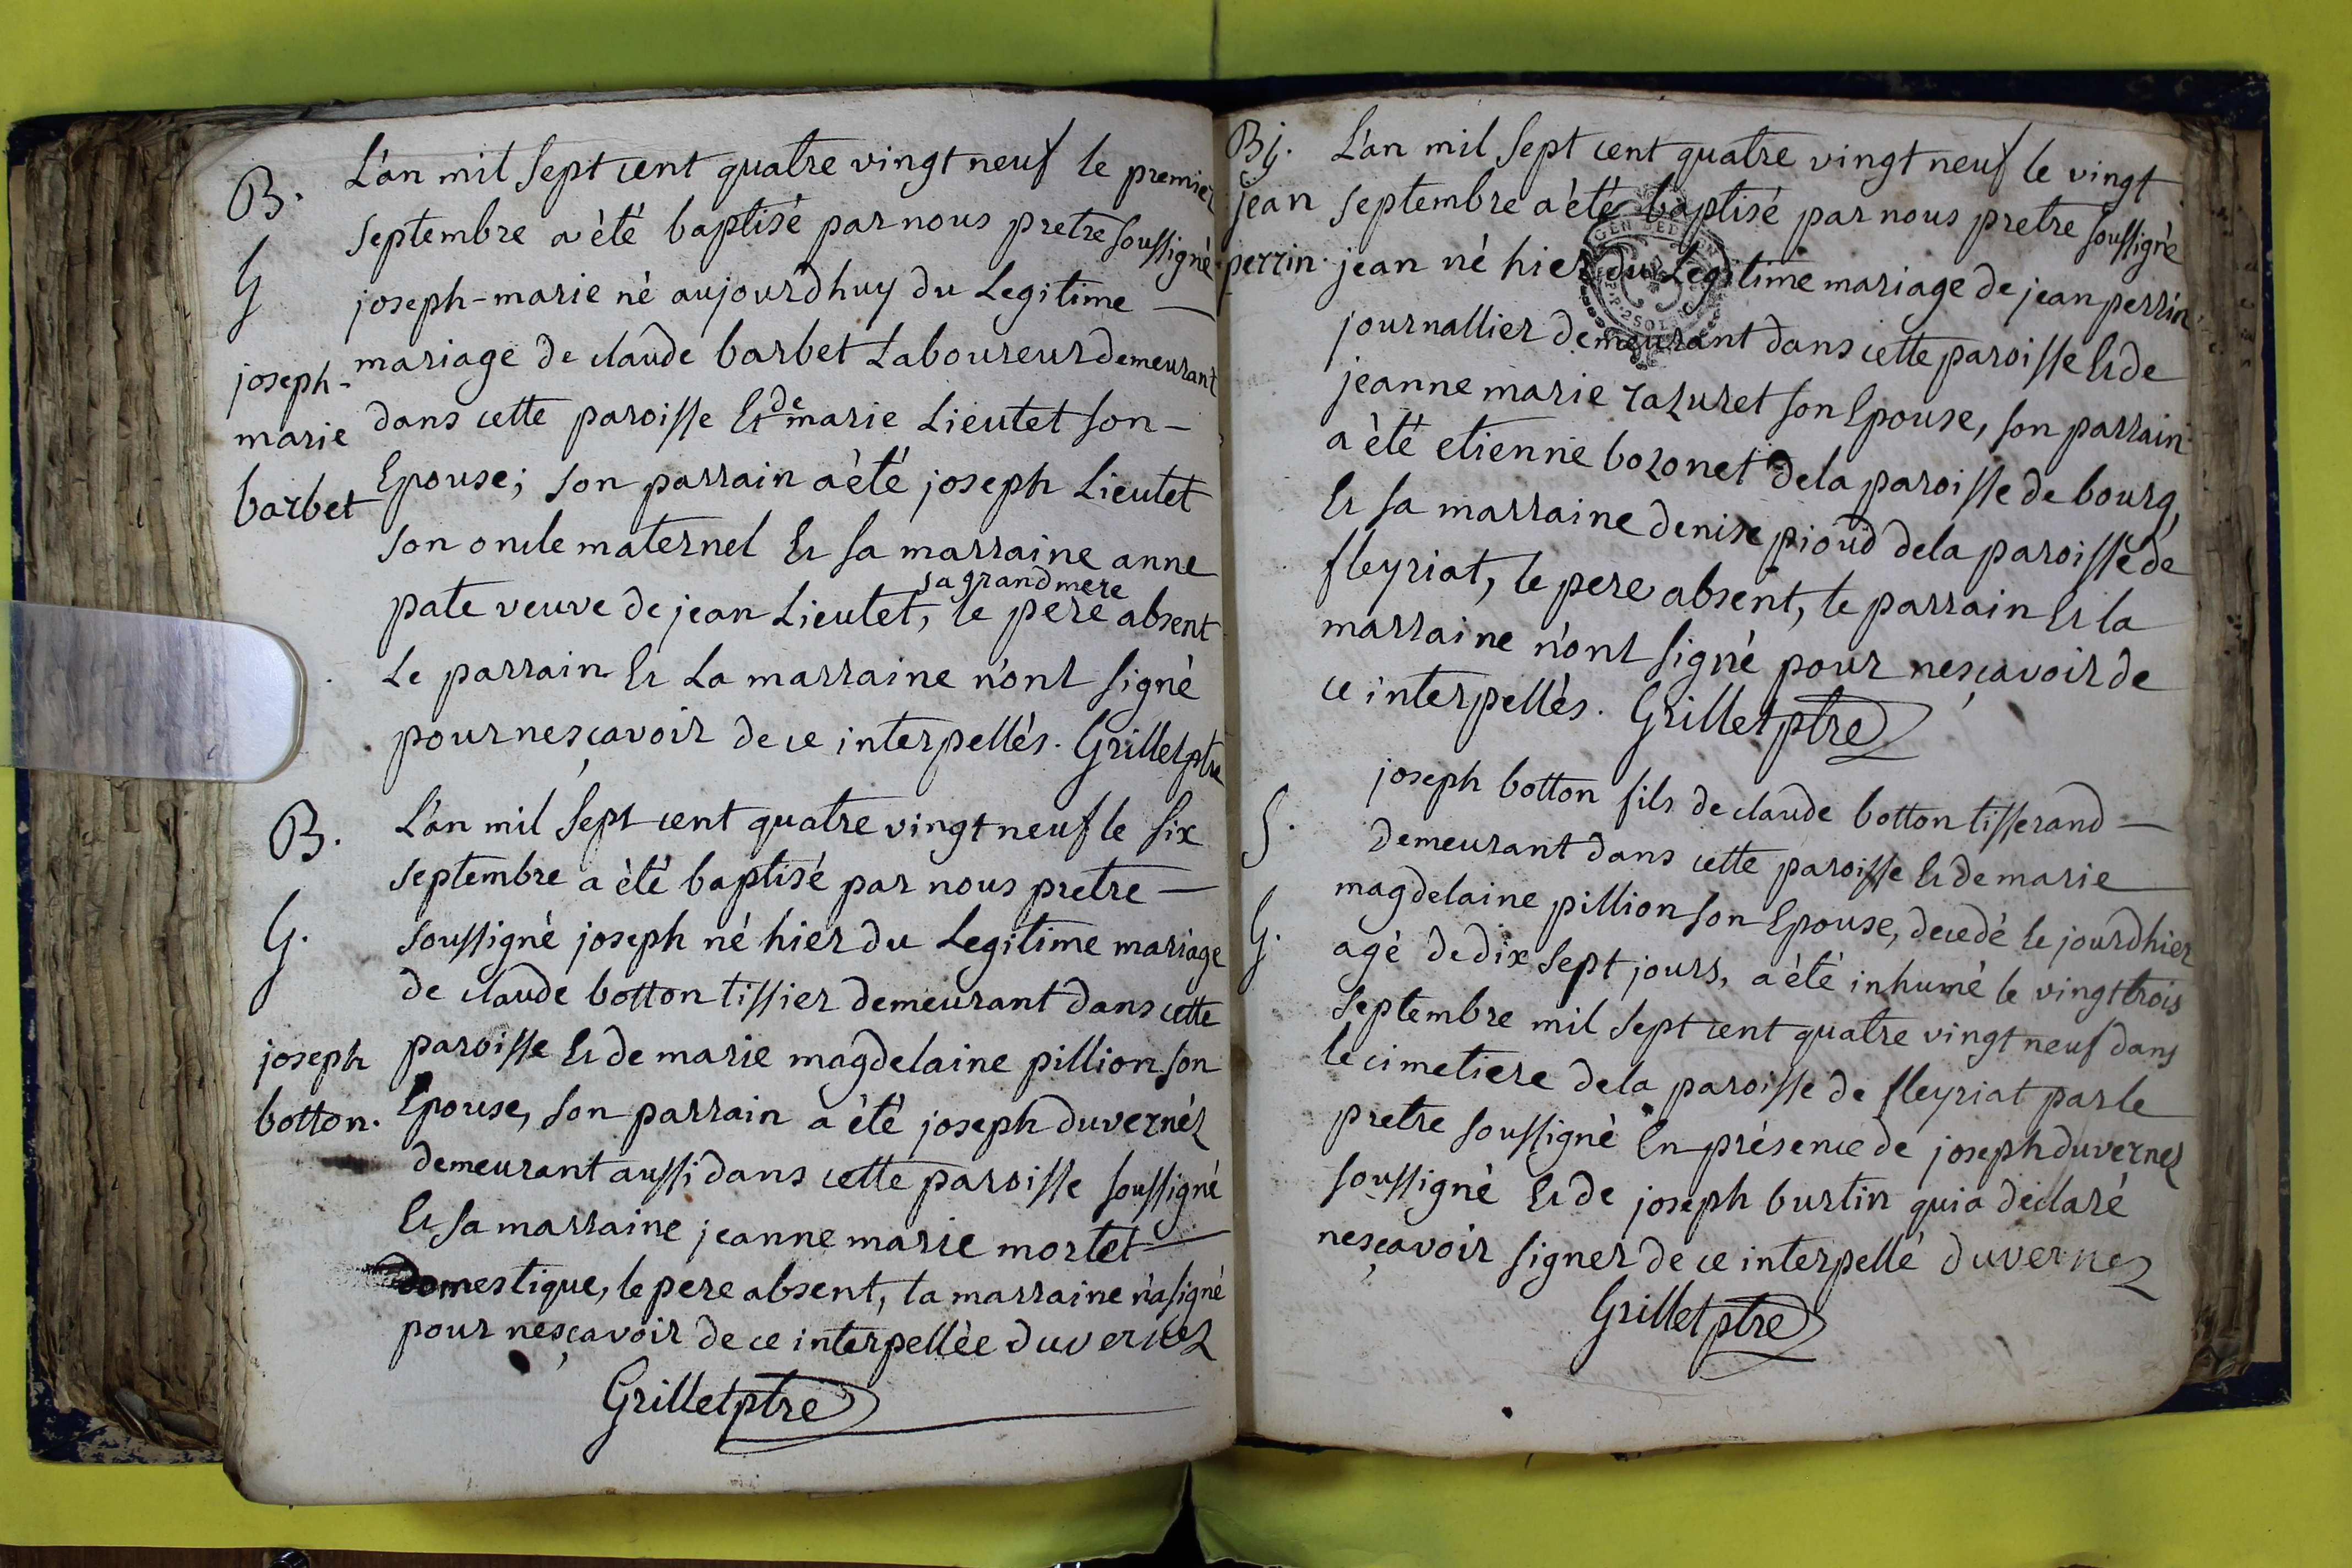 B.
G
joseph-
marie
barbet
L'an mil sept cent quatre vingt neuf le premier
septembre a èté baptisé par nous pretre soussigné
joseph-marie né aujourdhuy du Legitime —
mariage de claude barbet Laboureur demeurant
dans cette paroisse Et de marie Lieutet son -
Epouse; son parrain a èté joseph Lieutet
son oncle maternel Et sa marraine anne
sa grand mere
pate veuve de jean Lieutet, le pere absent
Le parrain Et La marraine n'ont signé
pour nesçavoir de ce interpellés. Grillet ptre
B.
G.
joseph
botton.
L'an mil sept cent quatre vingt neuf le six
septembre a èté baptisé par nous pretre —
soussigné joseph né hier du Legitime mariage
de claude botton tissier demeurant dans cette
paroisse Et de marie magdelaine pillion son
Epouse, son parrain a èté joseph duvernéz
demeurant aussi dans cette paroisse soussigné
Et sa marraine jeanne marie mortet —
domestique, le pere absent, la marraine n'a signé
pour nesçavoir de ce interpellée duvernez
Grillet ptre
B g.
jean
perrin.
L'an mil sept cent quatre vingt neuf le vingt
septembre a èté baptisé par nous pretre soussigné
jean né hier du Legitime mariage de jean perrin
journallier demeurant dans cette paroisse Et de
jeanne marie razuret son Epouse, son parrain
a èté etienne bozonet de la paroisse de bourg,
Et sa marraine denise pioud de la paroisse de
fleyriat, le pere absent, le parrain Et la
marraine n'ont signé pour nesçavoir de
ce interpellés. Grillet ptre
S.
G.
joseph botton fils de claude botton tisserand —
demeurant dans cette paroisse Et de marie
magdelaine pillion son Epouse, decedé le jourdhier
agé de dix sept jours, a èté inhumé le vingt trois
septembre mil sept cent quatre vingt neuf dans
le cimetiere de la paroisse de fleyriat par le
pretre soussigné En présence de joseph duvernez
soussigné Et de joseph burtin qui a déclaré
nesçavoir signer de ce interpellé duvernez
Grillet ptre